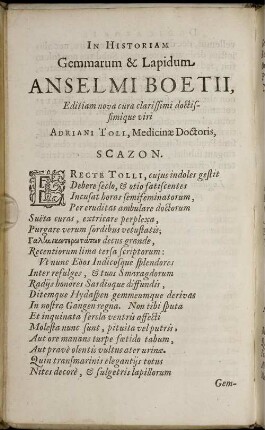 IN HISTORIAM
Gemmarum & Lapidum
ANSELMI BOETII,
Editiam nova cura clarissimi doctis-
simique viri
ADRIANI TOLI, Medicinæ Doctoris,
SCAZON.
ERECTE TOLLI, cujus indoles gestit
Debere seclo, & otio fatiscentes
Incusat horas semifeminatorum,
Per eruditas ambulare doctorum
Sueta curas, extricare perplexa,
Purgare verum sordibus vetustatis;
decus grande,
Recentiorum lima tersa scriptorum:
Vt nunc Eöos Indicosque splendores
Inter refulges, & tuos Smaragdorum
Radijs honores Sardiosque diffundis,
Ditemque Hydaspen gemmeumque derivas
In nostra Gangen regna. Non tibi sputa
Et inquinata fercla ventris affecti
Molesta nunc sunt, pituita vel putris,
Aut ore manans turpe fœtida tabum,
Aut pravè olentis vultus ater urinæ.
Quin transmarinis elegantijs totus
Nites decorè, & fulgetris lapillorum
Gem-